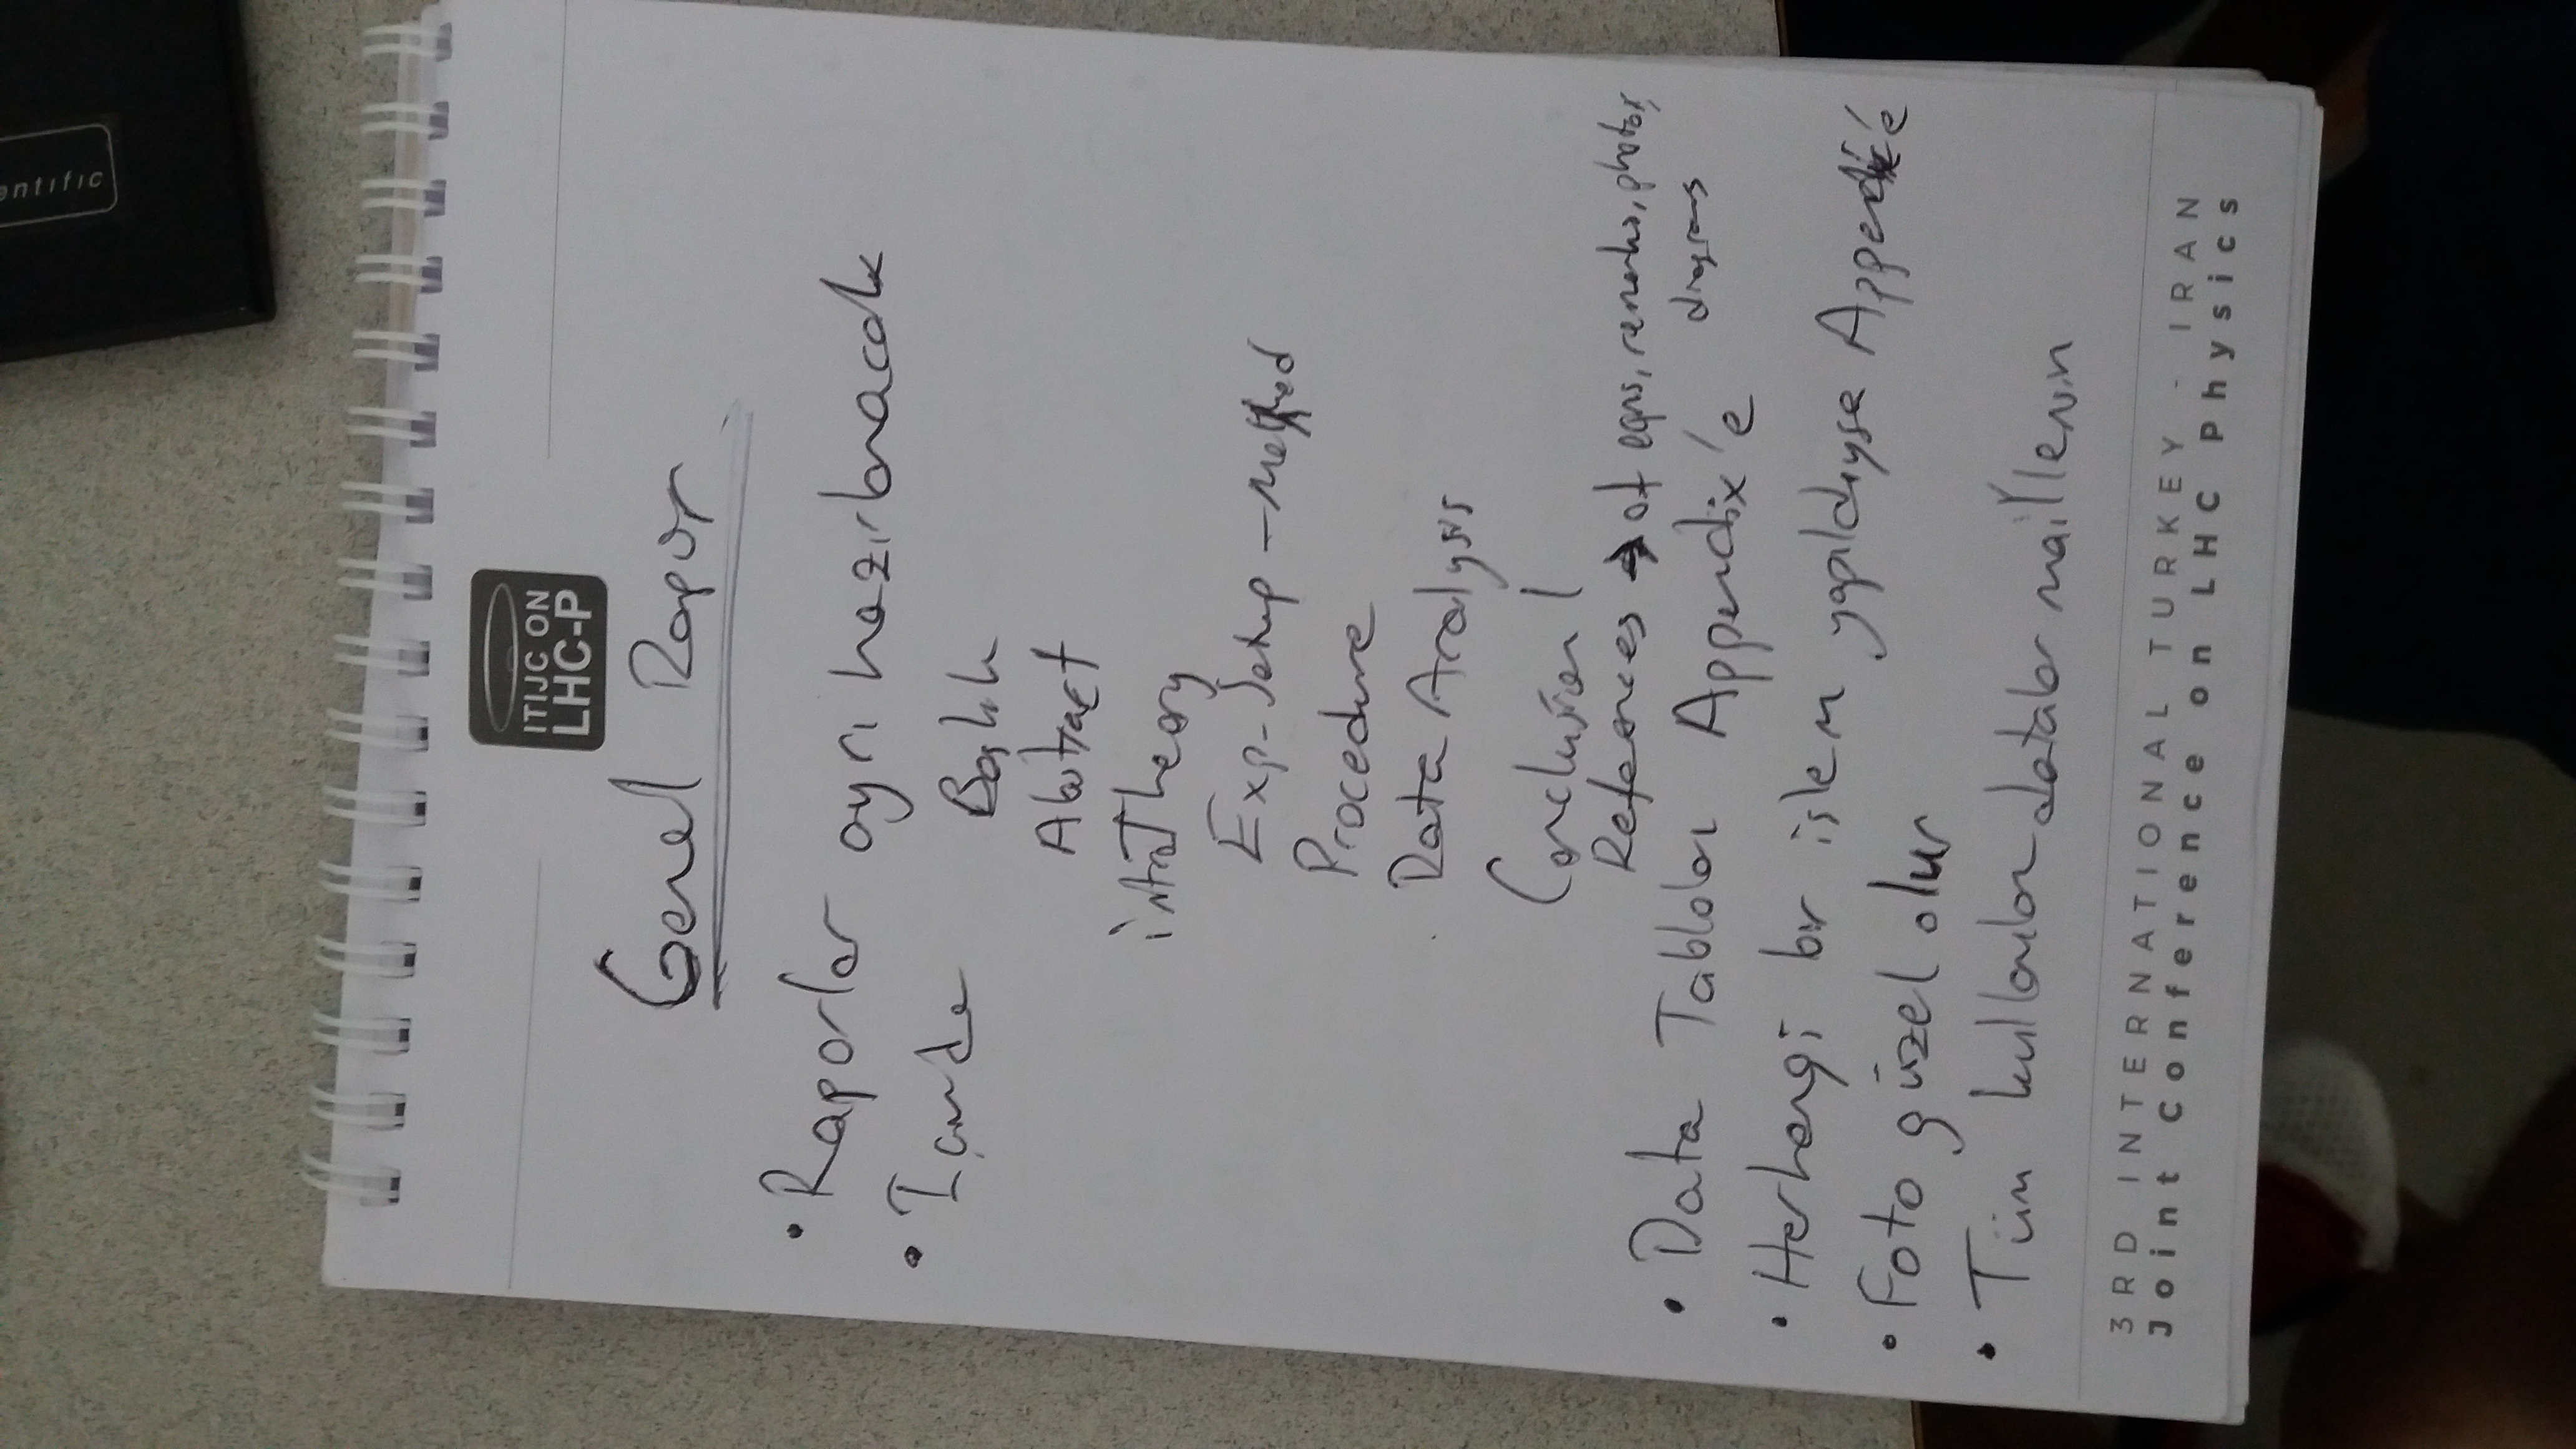 entific
ITIJC ON
LHC-P
Genel Rapor
• Raporlar ayrı hazırlanacak
• İçinde Başlık
Abstract
intro Theory
Exp-Setup - Method
Procedure
Data Analysis
Conclusion!
References → of eqns, remarks, photos,
diagrams
• Data Tabloları Appendix'e
• Herhangi bir işlem yapıldıysa Appendix'e
• Foto güzel olur
• Tüm kullanılan datalar mail'lensin
3RD INTERNATIONAL TURKEY - IRAN
Joint Conference on LHC Physics